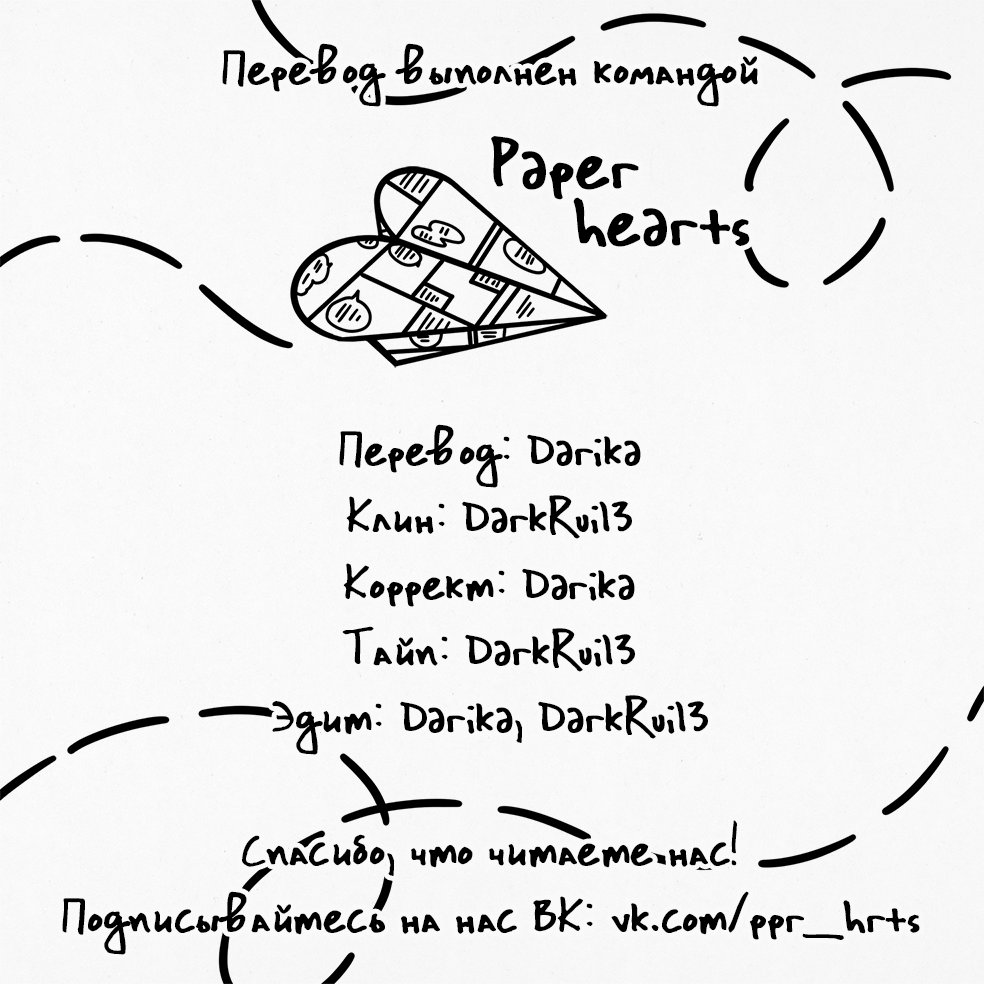 Перевод выполнен командой
Paper
hearts
Перевод: Darika
Клин: DarkRui13
Коррект: Darika
Тайп: DarkRui13
Эдит: Darika, DarkRui13
Спасибо, что читаете нас!
Подписывайтесь на нас ВК: vk.com/ppr_hrts